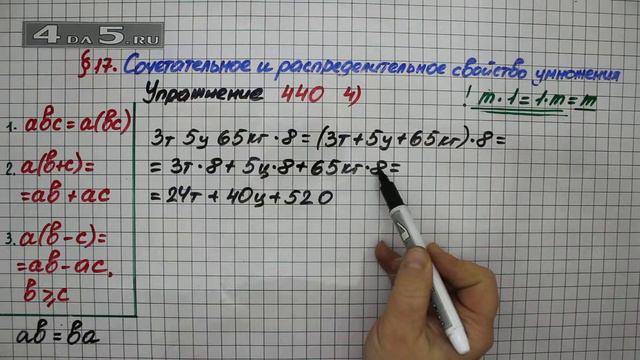 4DA5.RU
§17. Сочетательное и распределительное свойство умножения
Упражнение 440 4)
! m·1=1·m=m
1. abc=a(bc)
2. a(b+c)=
=ab+ac
3. a(b-c)=
=ab-ac,
b⩾c
ab=ba
3т 5ц 65кг·8=(3т+5ц+65кг)·8=
=3т·8+5ц·8+65кг·8=
=24т+40ц+520